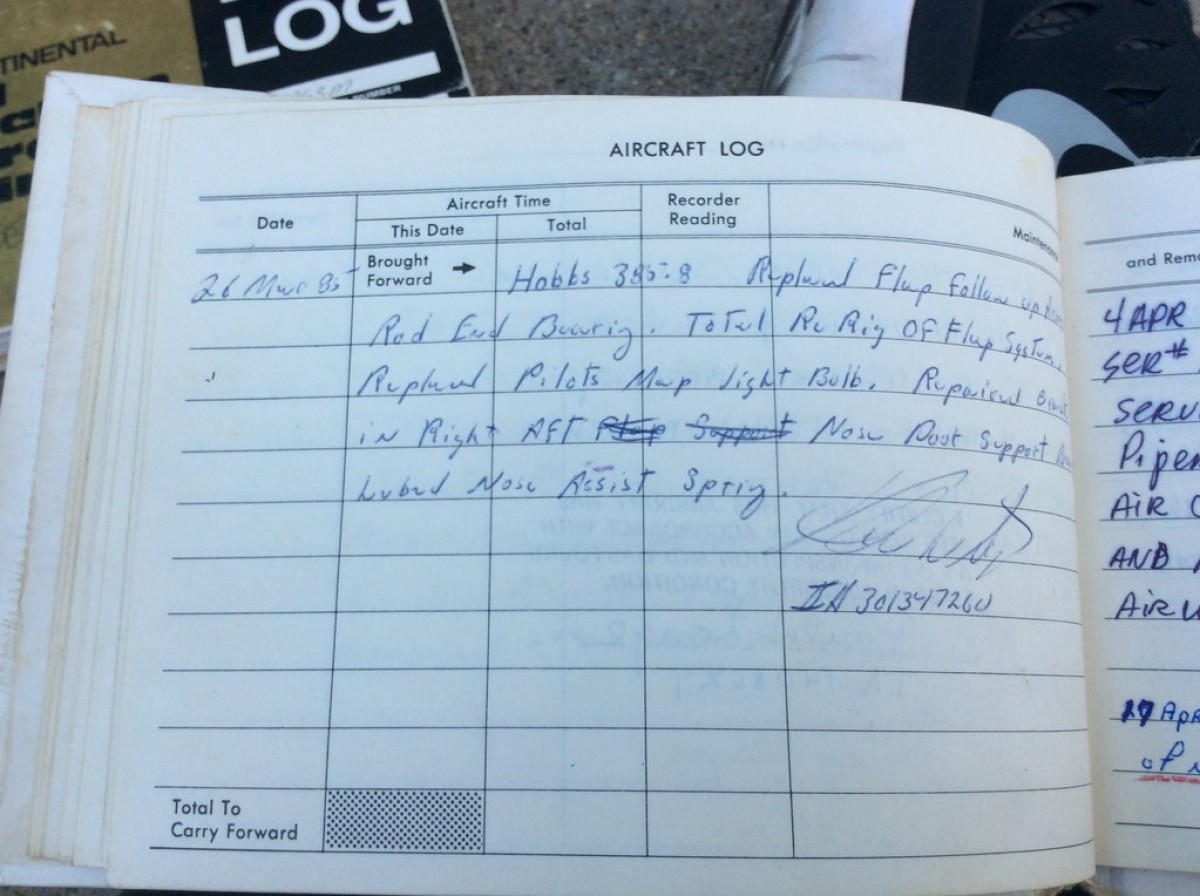 TINENTAL
LOG
NUMBER
AIRCRAFT LOG
Date
Aircraft Time
This Date
Total
Recorder Reading
26 Mar 85
Brought Forward →
Hobbs 385.8 Replaced Flap Follow up
Rod End Bearig. Total Re Rig OF Flap System.
Replaced Pilots Map Light Bulb. Repaired
in Right AFT Flap Support Nose Door Support
Lubed Nose Assist Sprig.
IA 301347260
Total To Carry Forward
and Rem
4 APR
SER#
SERV
Piper
AIR
AND
AIRW
17 Apr
of